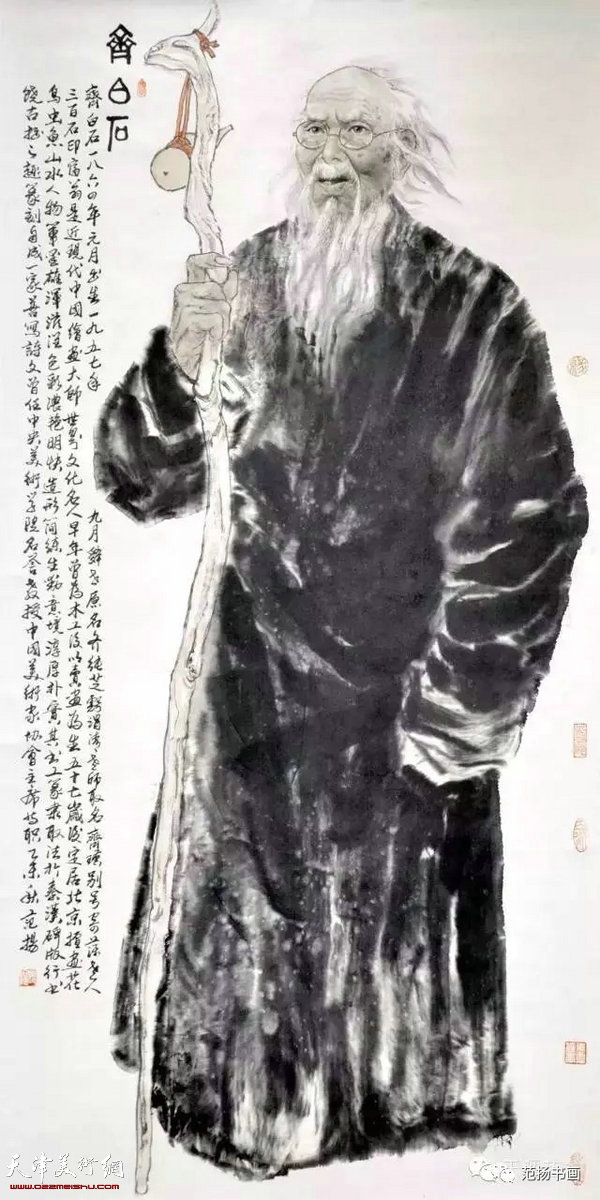 齊白石
齊白石一八六四年元月出生一九五七年九月辞世原名齐纯芝號渭清老师取名齊璜别号寄萍老人
三百石印富翁是近現代中國繪畫大師世界文化名人早年曾為木工後以賣畫為生五十七歲後定居北京擅畫花
鸟虫魚山水人物筆墨雄渾滋潤色彩濃艳明快造形简练生動意境淳厚朴實其书工篆隶取法於秦漢碑版行书
饒古拙之趣篆刻自成一家善寫詩文曾任中央美術学院名誉教授中国美術家协會主席等职乙未秋范揚
天津美術網
www.022meishu.com
范扬书画